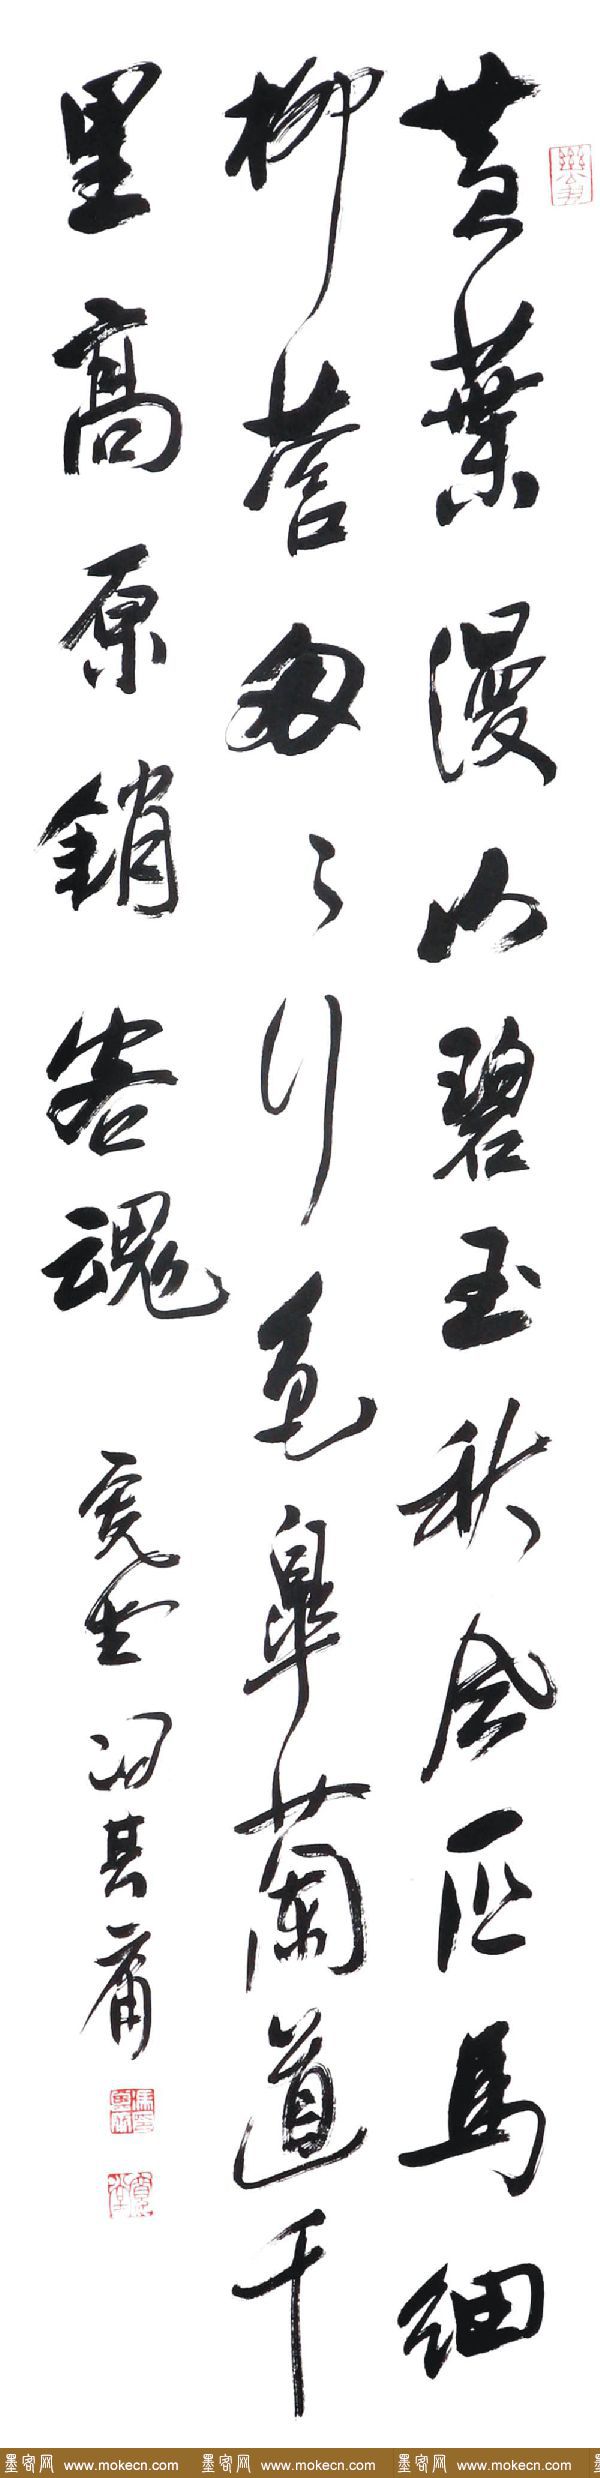 黄葉漫山碧玉秋風匹馬細
柳營匆々行色皋蘭道千
里高原銷客魂 寬堂馮其庸
寬堂
墨客网 www.mokecn.com 墨客网 www.mokecn.com 墨客网 www.mokecn.com